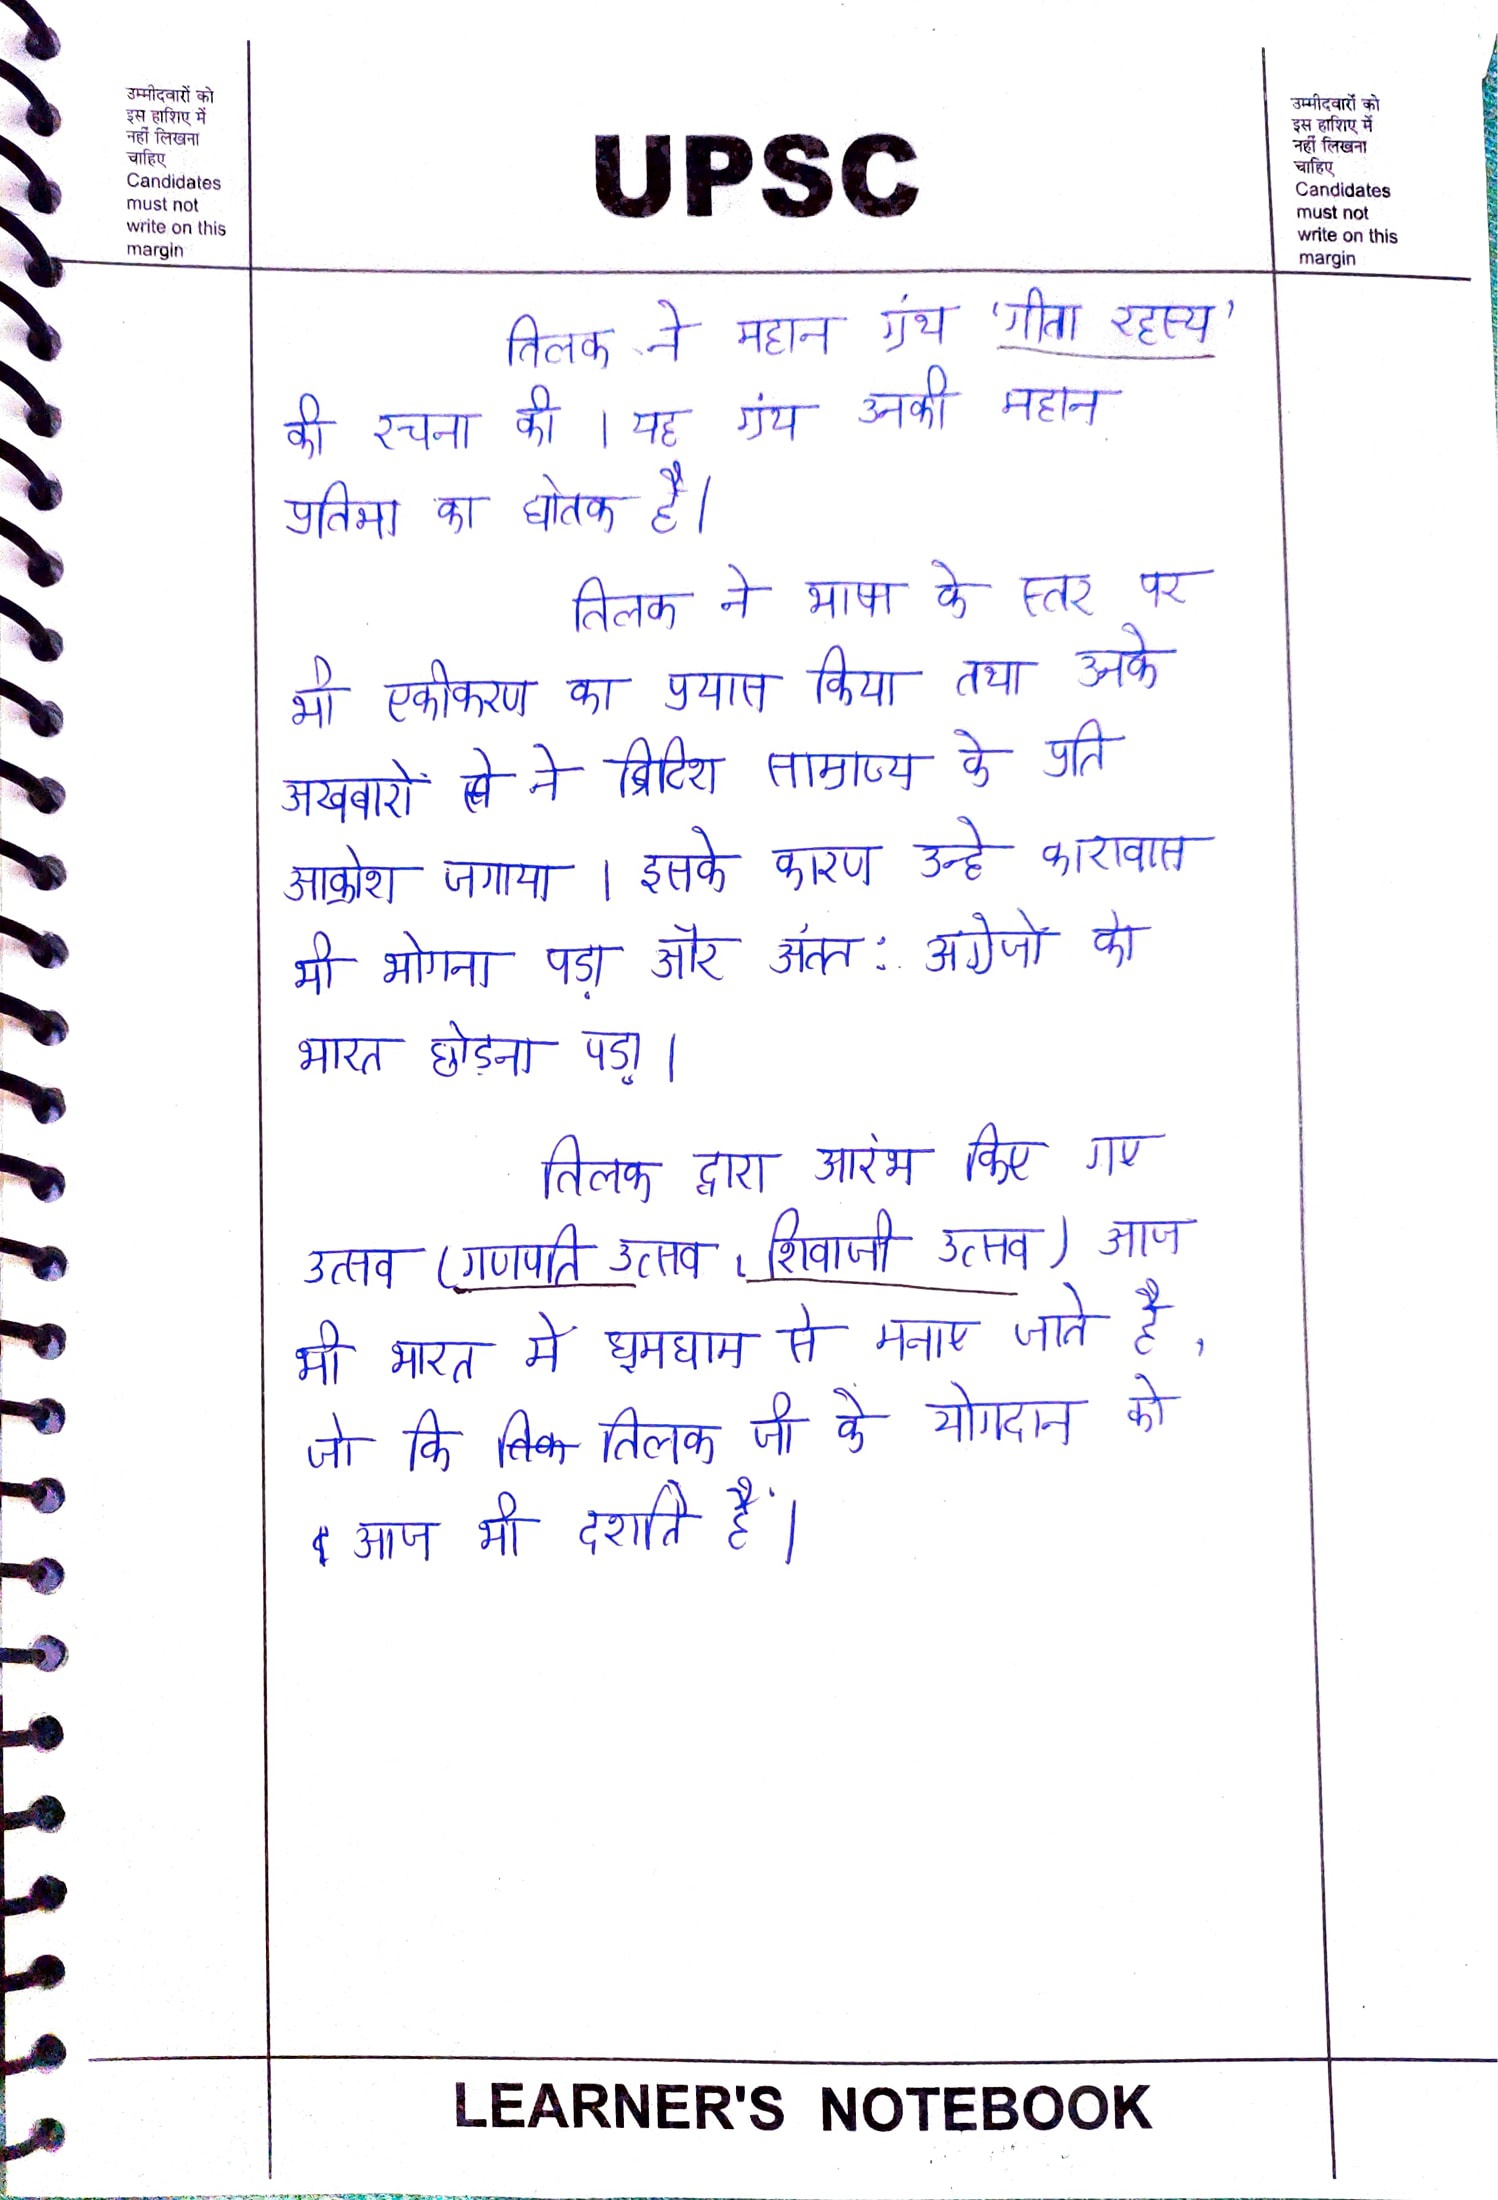 उम्मीदवारों को
इस हाशिए में
नहीं लिखना
चाहिए
Candidates
must not
write on this
margin
UPSC
उम्मीदवारों को
इस हाशिए में
नहीं लिखना
चाहिए
Candidates
must not
write on this
margin
तिलक ने महान ग्रंथ 'गीता रहस्य'
की रचना की । यह ग्रंथ उनकी महान
प्रतिभा का द्योतक है।
तिलक ने भाषा के स्तर पर
भी एकीकरण का प्रयास किया तथा उनके
अखबारों ने ब्रिटिश साम्राज्य के प्रति
आक्रोश जगाया । इसके कारण उन्हे कारावास
भी भोगना पड़ा और अंतत: अंग्रेजों को
भारत छोड़ना पड़ा ।
तिलक द्वारा आरंभ किए गए
उत्सव (गणपति उत्सव, शिवाजी उत्सव) आज
भी भारत में धूमधाम से मनाए जाते है,
जो कि तिलक जी के योगदान को
आज भी दर्शाते हैं।
LEARNER'S NOTEBOOK